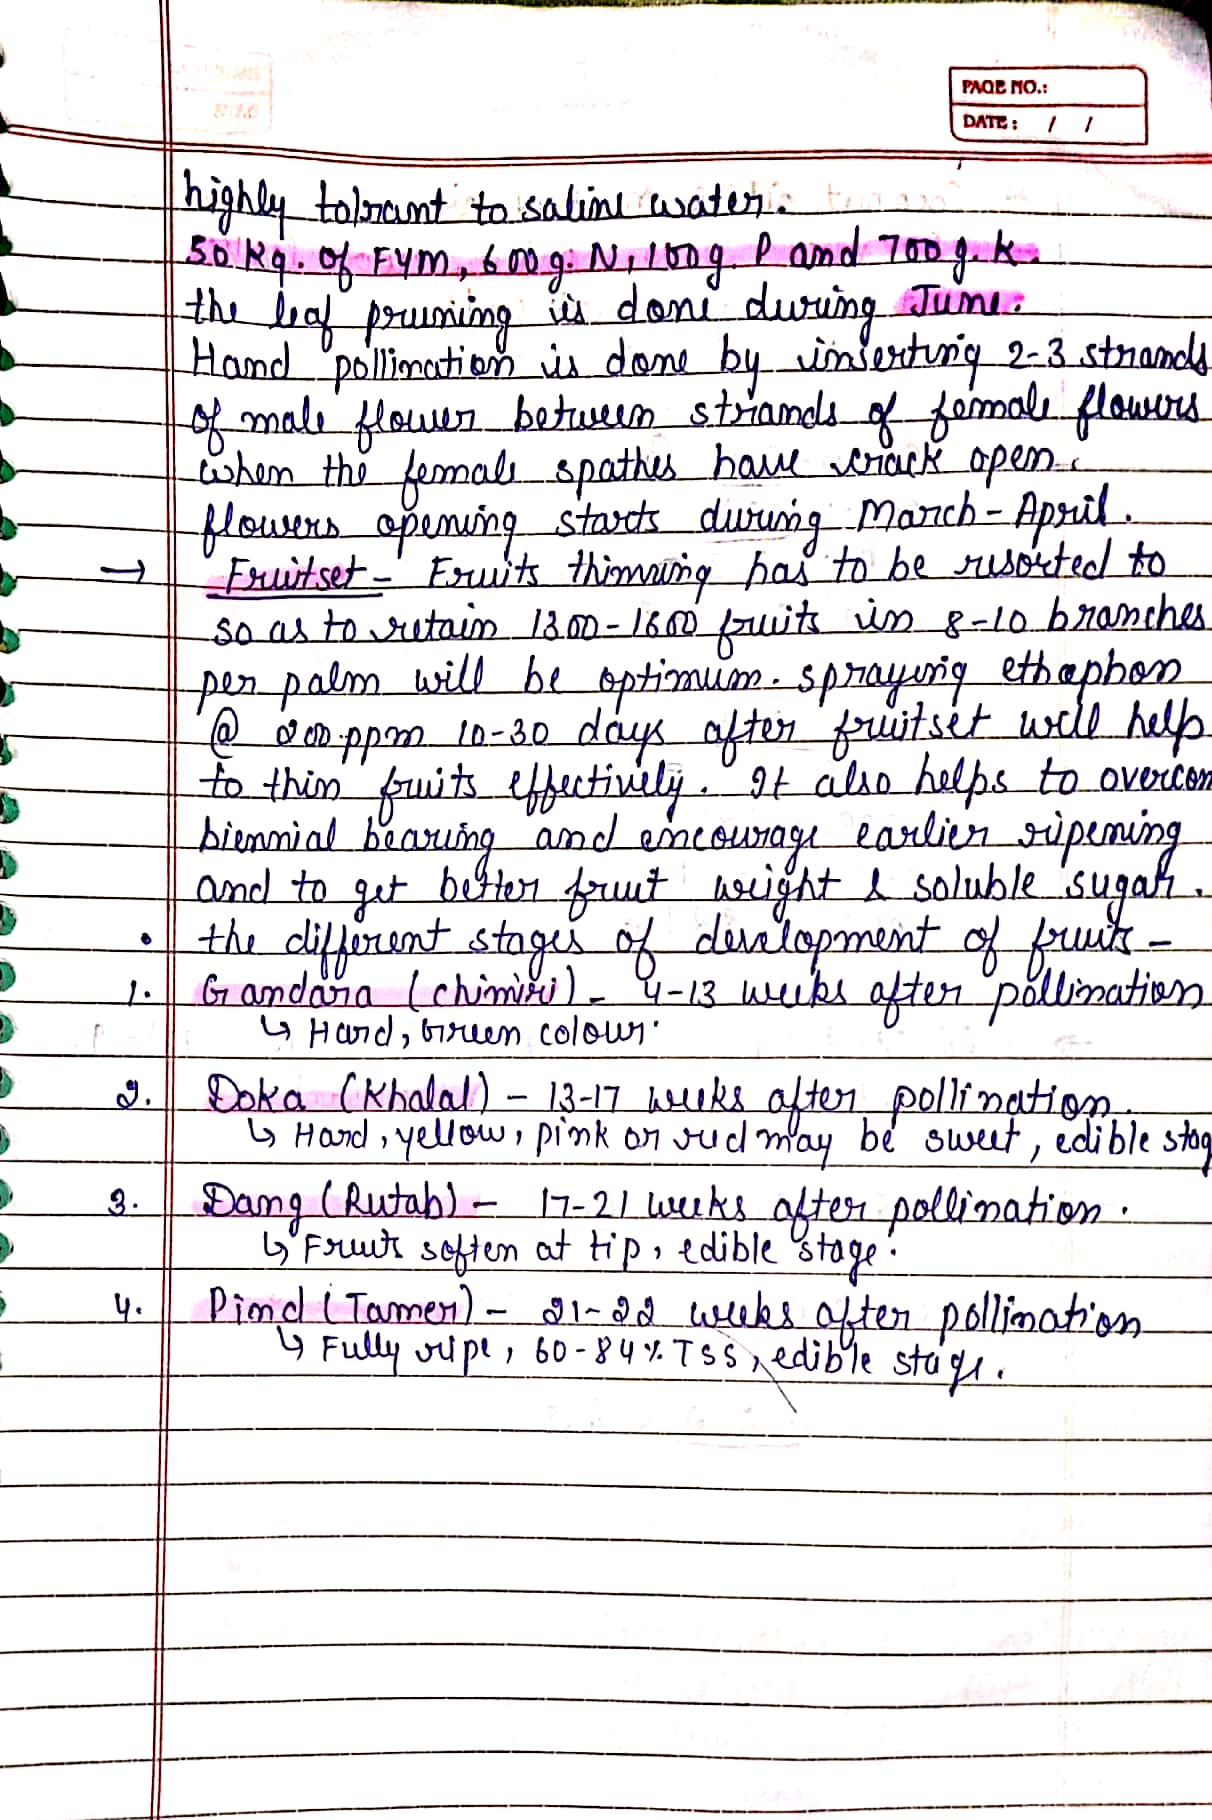 PAGE NO.:
DATE: / /
highly tolrant to saline water.
50 Kg. of FYM, 600g. N, 100g. P and 700g. K.
the leaf pruning is done during June.
Hand pollination is done by inserting 2-3 strands
of male flower between strands of female flowers
when the female spathes have crack open.
flowers opening starts during March - April.
→ Fruitset - Fruits thinning has to be resorted to
so as to retain 1300-1600 fruits in 8-10 branches
per palm will be optimum. spraying ethephon
@ 200 ppm 10-30 days after fruitset will help
to thin fruits effectively. It also helps to overcom
biennial bearing and encourage earlier ripening
and to get better fruit weight & soluble sugar.
• the different stages of development of fruits -
1. Gandara (chimiri) - 4-13 weeks after pollination
↳ Hard, Green colour.
2. Doka (Khalal) - 13-17 weeks after pollination.
↳ Hard, yellow, pink or red may be sweet, edible stag
3. Dang (Rutab) - 17-21 weeks after pollination.
↳ Fruits soften at tip, edible stage.
4. Pind (Tamer) - 21-22 weeks after pollination
↳ Fully ripe, 60-84% TSS, edible stage.